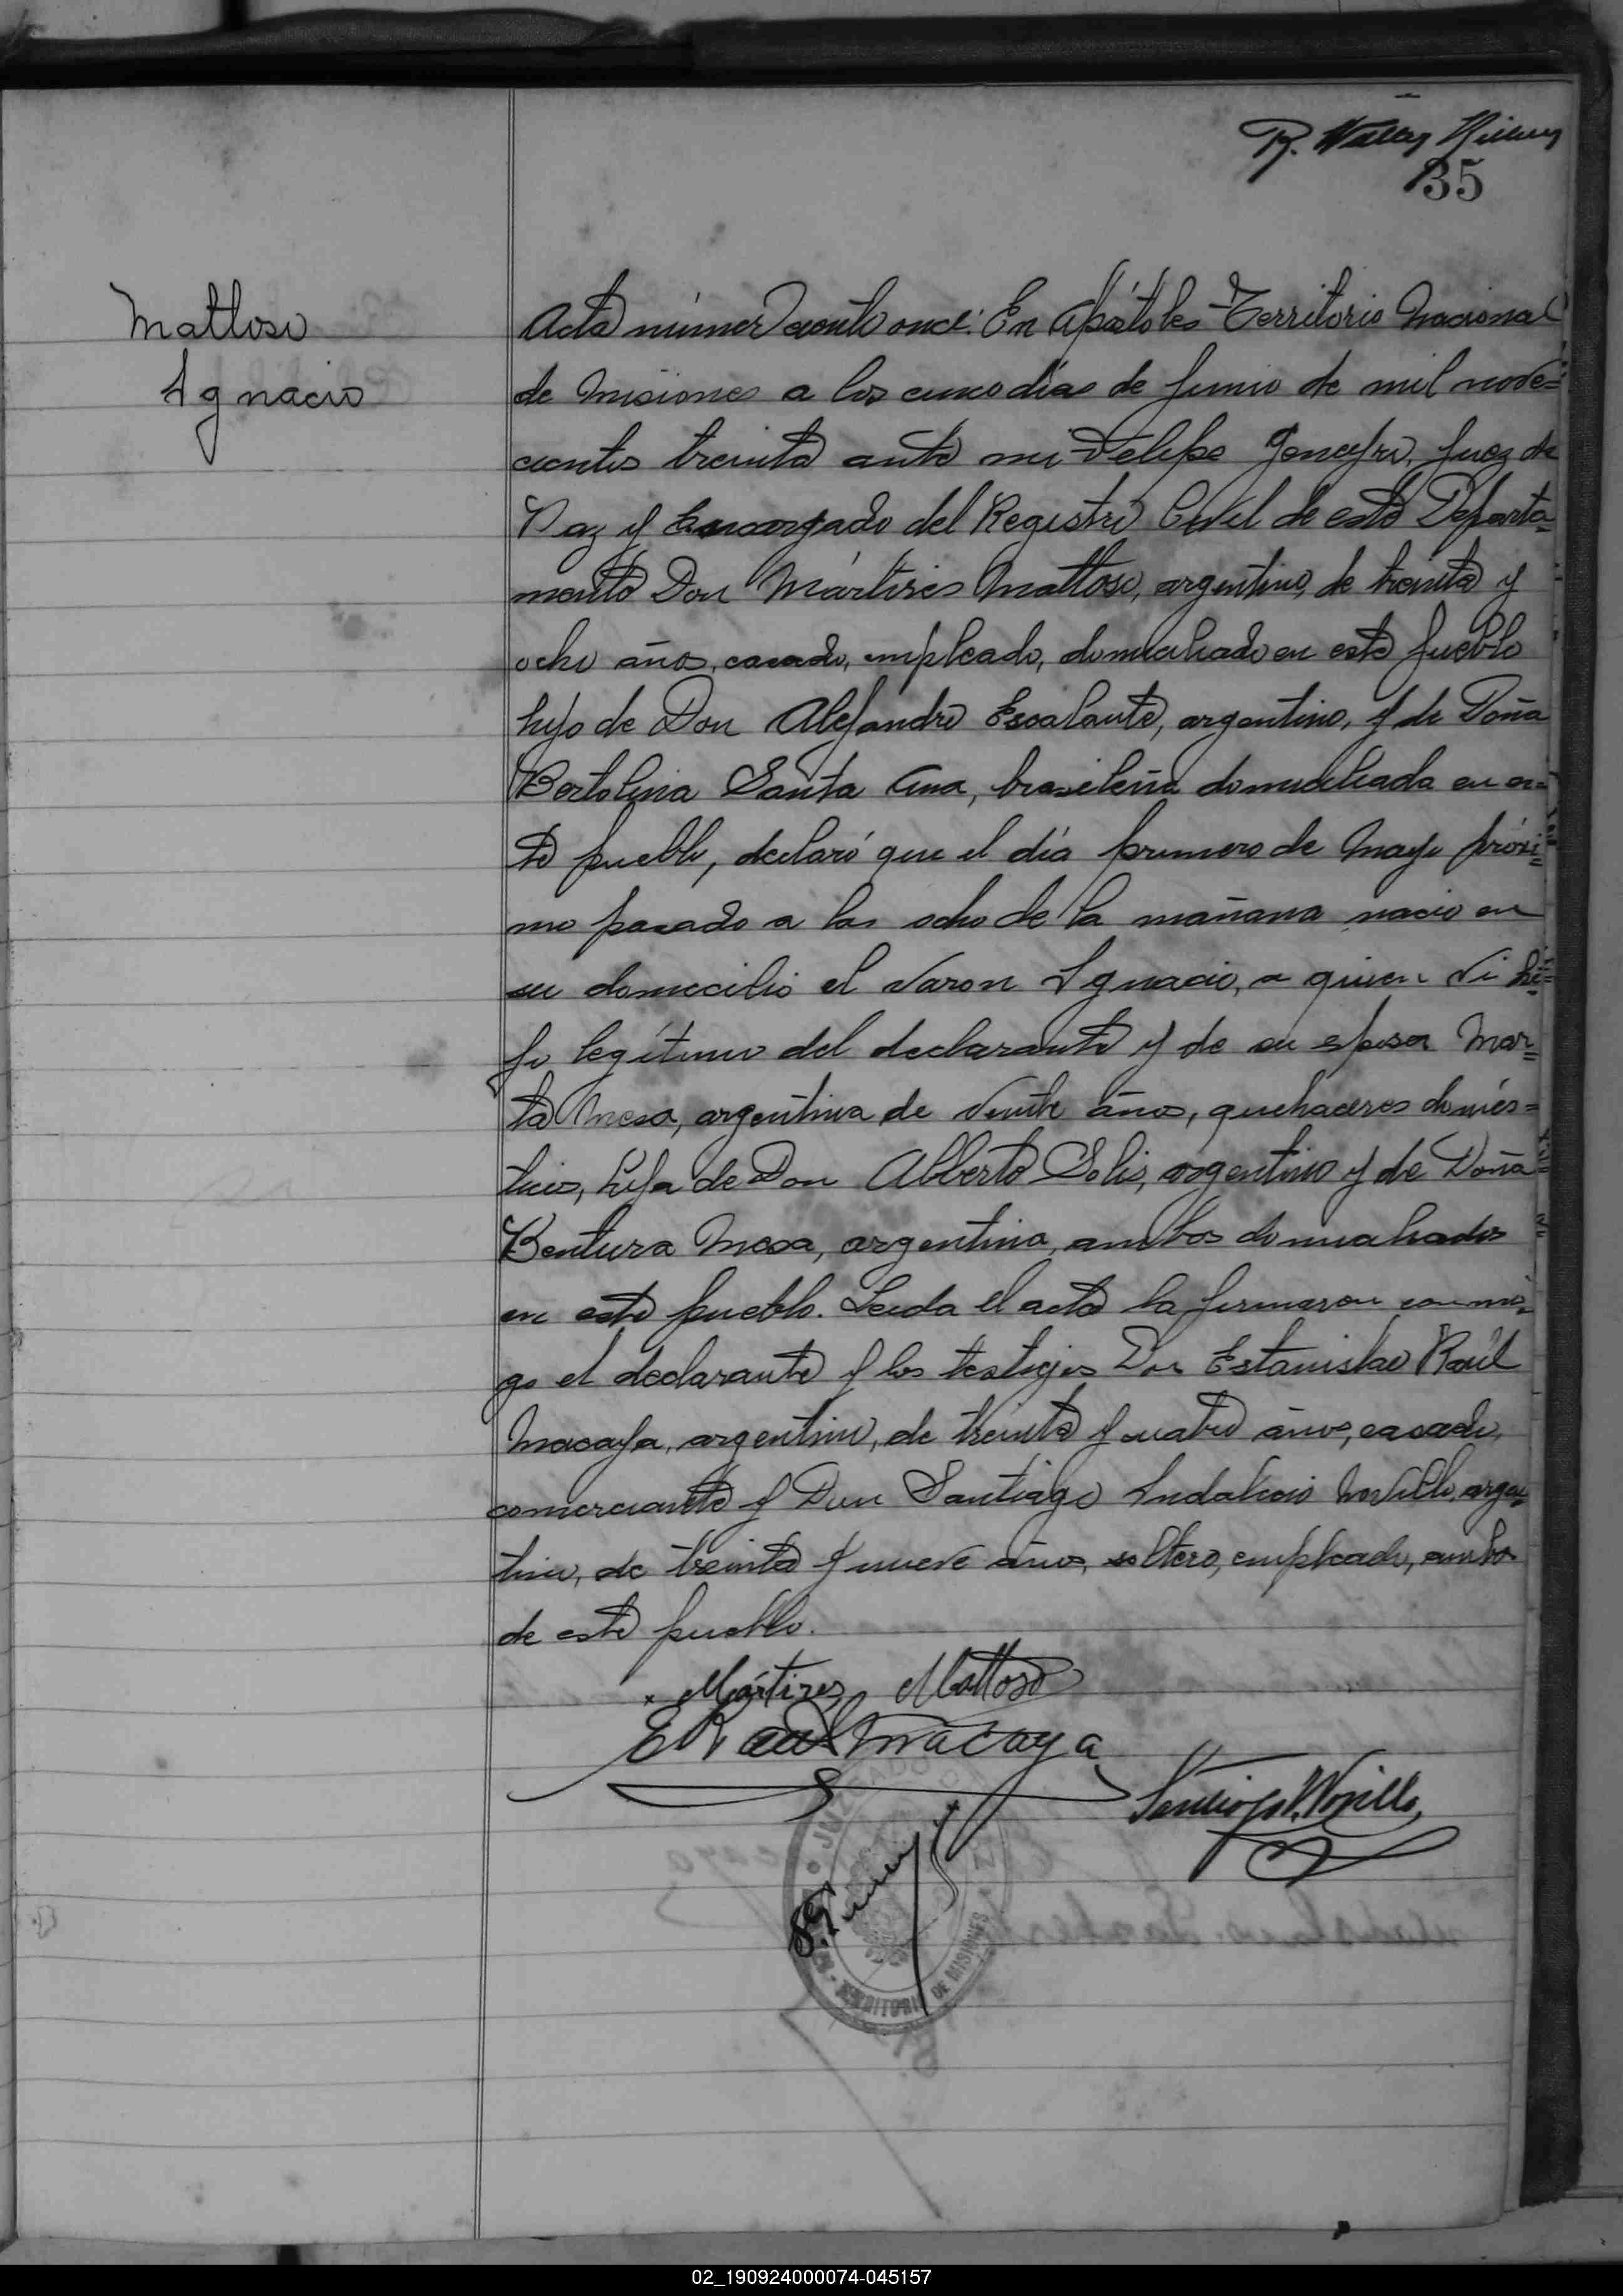 35
Mattoso
Ignacio
Acta número ciento once: En Apóstoles Territorio Nacional
de Misiones a los cinco días de Junio de mil nove=
cientos treinta ante mi Felipe Juez de
Paz y Encargado del Registro Civil de este Departa=
mento Don Mártires Mattoso, argentino, de treinta y
ocho años, casado, empleado, domiciliado en este pueblo
hijo de Don Alejandro Escalante, argentino, y de Doña
Bertolina Santa Ana, brasileña domiciliada en es=
te pueblo, declaró que el día primero de Mayo próxi=
mo pasado a las ocho de la mañana nació en
su domicilio el varon Ignacio, a quien vi hi=
jo legítimo del declarante y de su esposa Mar=
ta Mesa, argentina de veinte años, quehaceres domés=
ticos, hija de Don Alberto Solis, argentino y de Doña
Bentura Mesa, argentina, ambos domiciliados
en este pueblo. Leida el acta la firmaron conmi=
go el declarante y los testigos Don Estanislao Raúl
Macaya, argentino, de treinta y cuatro años, casado,
comerciante y Don Santiago Indalecio Novillo, argen=
tino, de treinta y nueve años, soltero, empleado, ambos
de este pueblo.
Mártires Mattoso
E Raul Macaya
Santiago I. Novillo
JUZGADO
TERRITORIO DE MISIONES
02_190924000074-045157